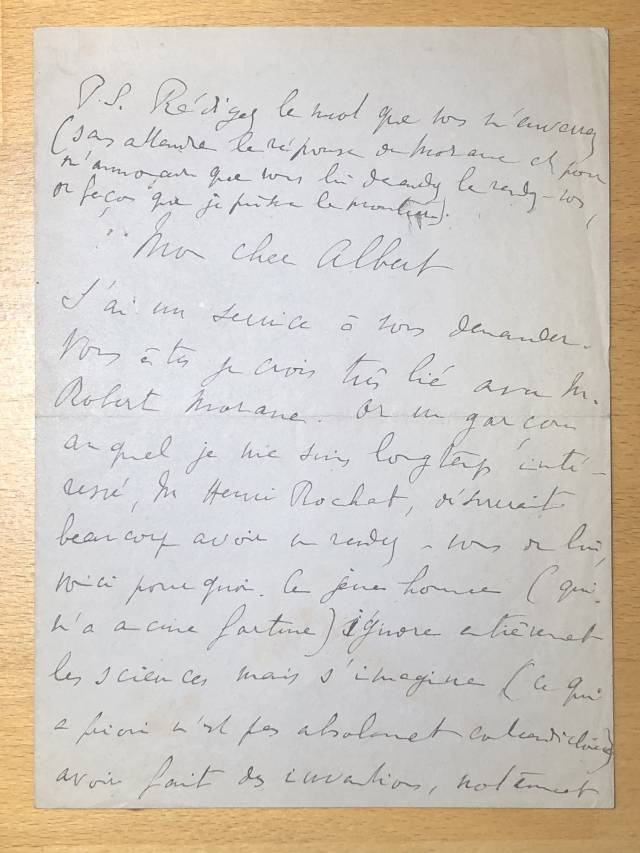 P.S. Rédigez le mot que vous m'enverrez
(sans attendre la réponse de Morane et pour
m'annoncer que vous lui demandez le rendez-vous,
de façon que je puisse le montrer).
Mon cher Albert
J'ai un service à vous demander.
Vous êtes je crois très lié avec M.
Robert Morane. Or un garçon
auquel je me suis longtemps inté-
ressé, M Henri Rochat, désirerait
beaucoup avoir un rendez-vous de lui,
voici pourquoi. Ce jeune homme (qui
n'a aucune fortune) ignore entièrement
les sciences mais s'imagine (ce qui
a priori n'est pas absolument contradictoire)
avoir fait des inventions, notamment